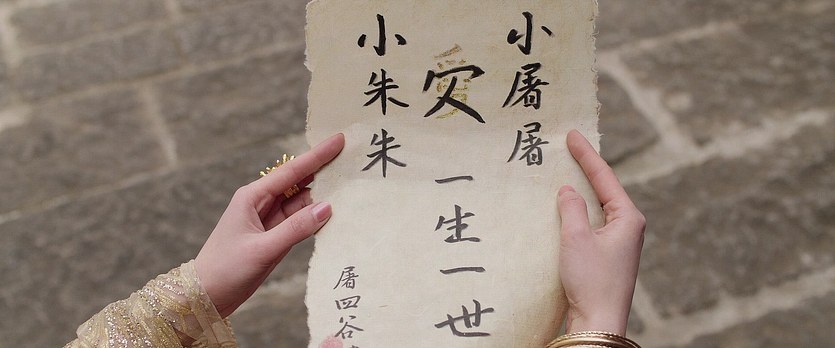 小屠屠
愛
一生一世
小朱朱
屠四谷